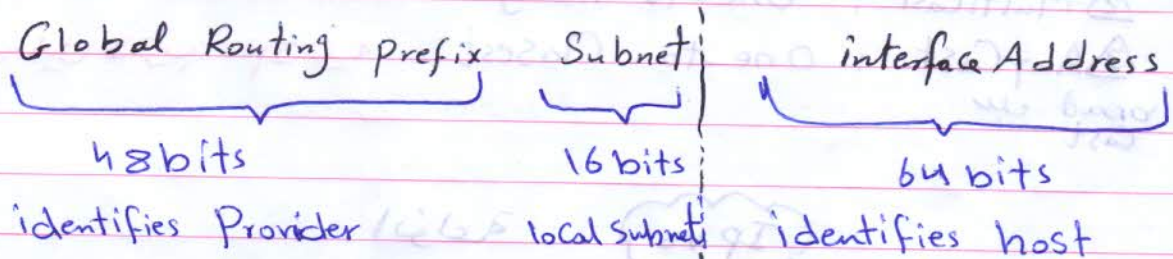 Global Routing Prefix Subnet interface Address
48bits 16bits 64 bits
identifies Provider local Subnet identifies host